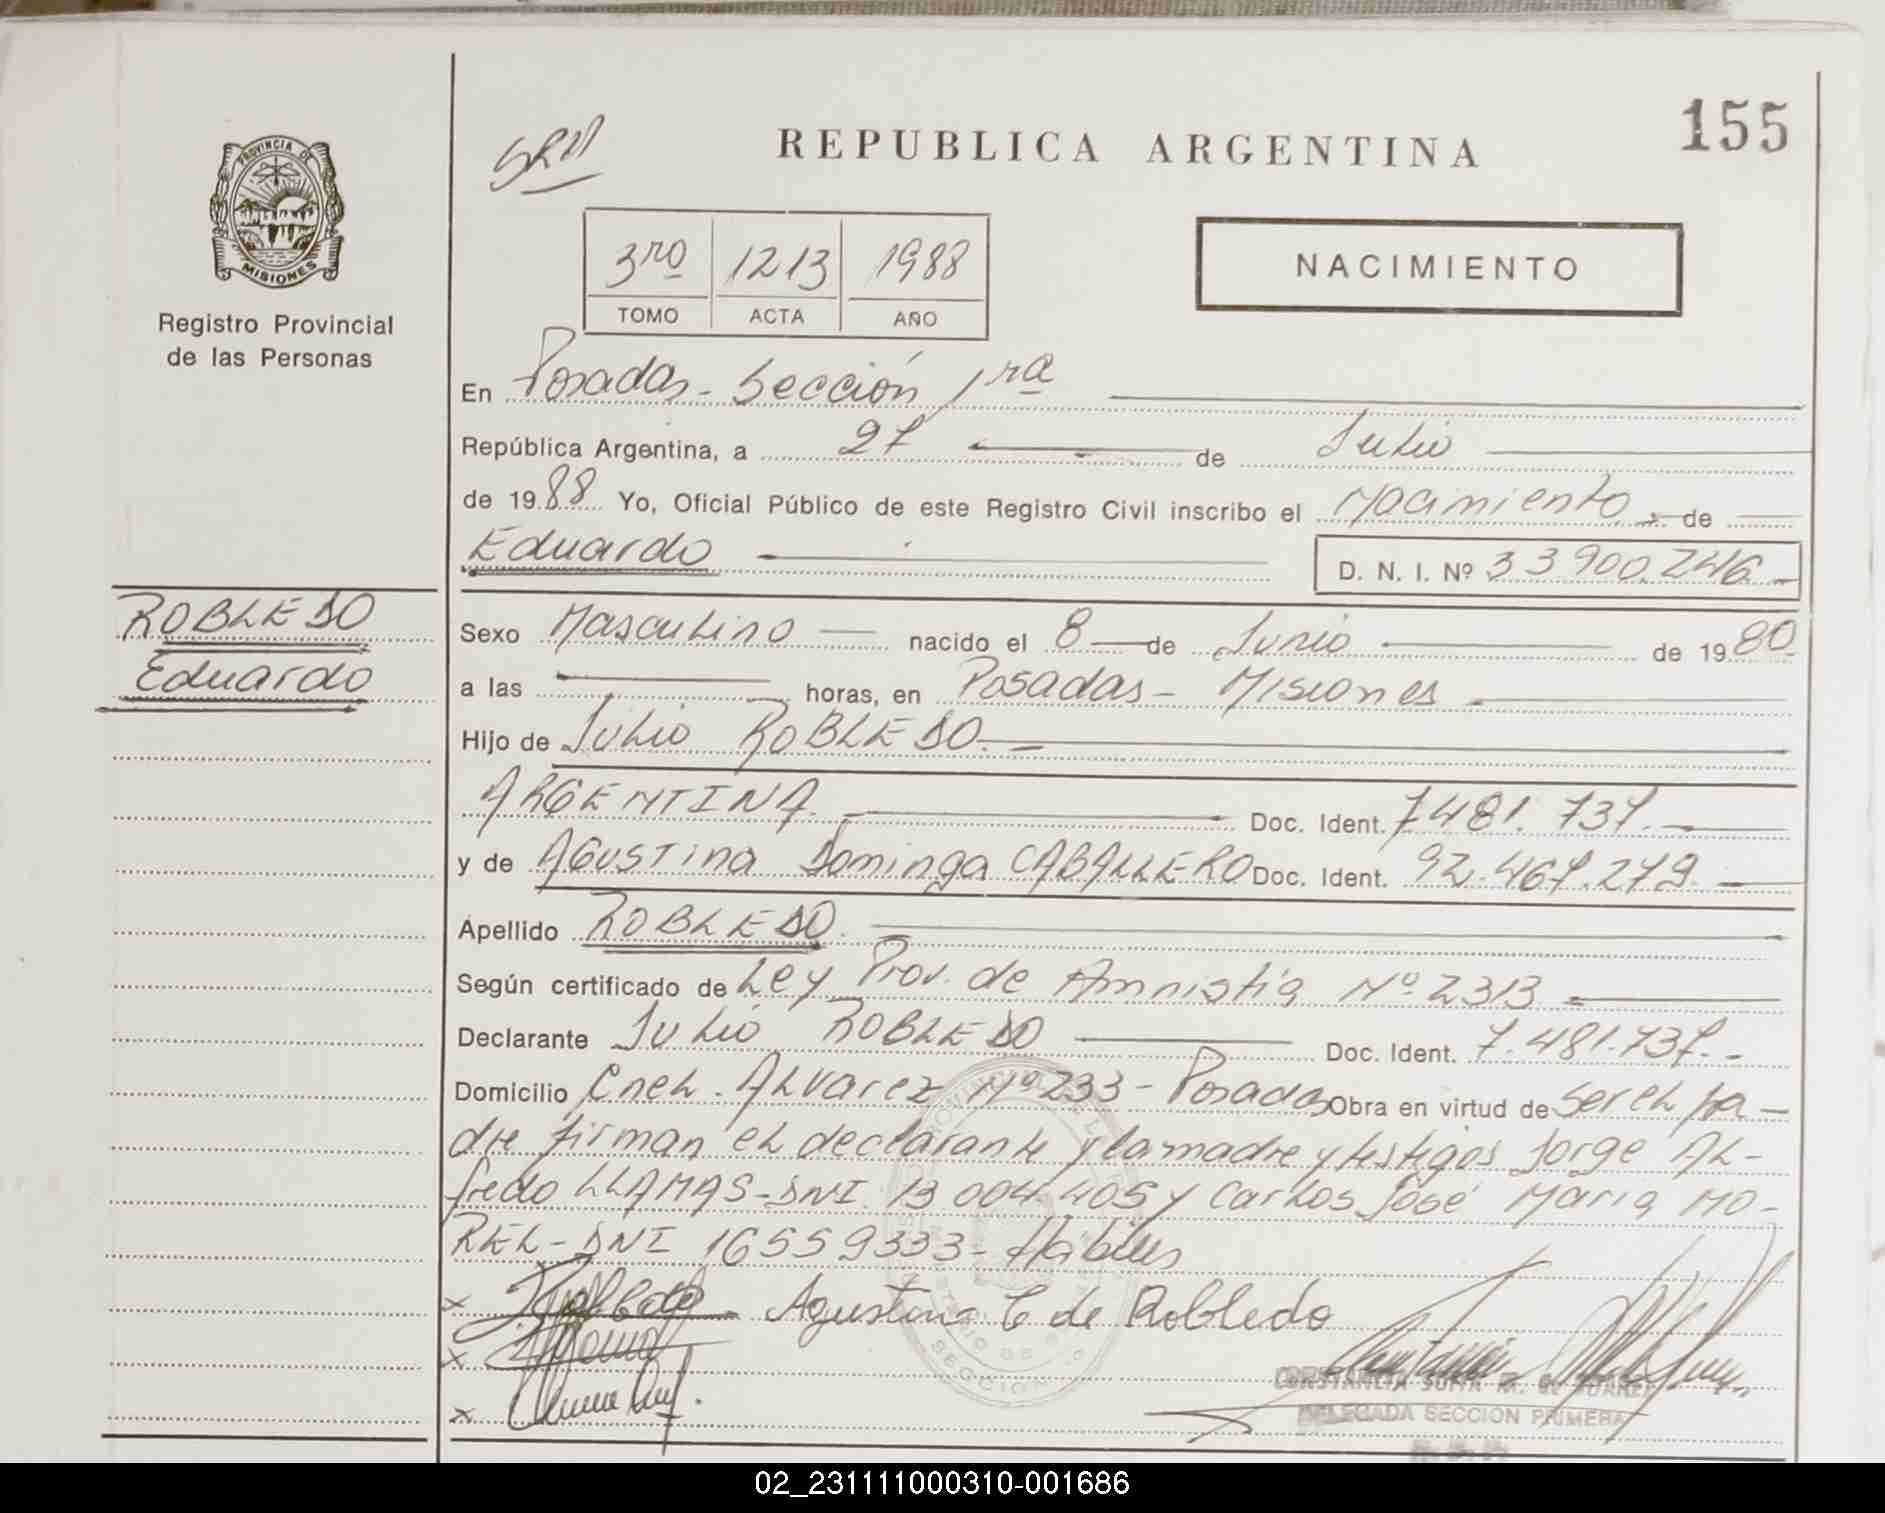 155
REPUBLICA ARGENTINA
PROVINCIA DE
MISIONES
Registro Provincial
de las Personas
3ro 1213 1988
TOMO ACTA AÑO
NACIMIENTO
En Posadas - Sección 1ra
República Argentina, a 27 de Julio
de 1988 Yo, Oficial Público de este Registro Civil inscribo el Nacimiento de
Eduardo
D. N. I. Nº 33900.246
ROBLEDO
Eduardo
Sexo Masculino nacido el 8 de Junio de 1980
a las horas, en Posadas - Misiones
Hijo de Julio ROBLEDO.
ARGENTINA. Doc. Ident. 7481.737.
y de AGUSTina Dominga CABALLERO Doc. Ident. 92.467.279.
Apellido ROBLEDO.
Según certificado de Ley Prov. de Amnistía Nº 2313
Declarante Julio ROBLEDO Doc. Ident. 7.481.737.-
Domicilio Cnel. Alvarez Nº 233 - Posadas Obra en virtud de ser el pa-
dre firman el declarante y la madre y testigos Jorge Al-
fredo LLAMAS - DNI. 13.004.405 y Carlos José María MO-
REL - DNI 16559333 - Hábiles
x
Agustina C de Robledo
x
x
CONSTANCIA SUITA M. de SUAREZ
DELEGADA SECCION PRIMERA
02_231111000310-001686